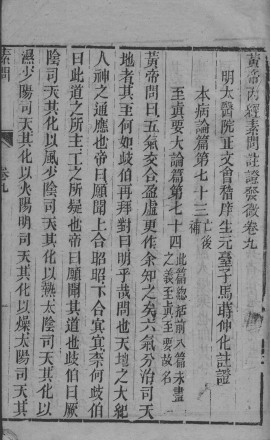 黃帝內經素問註證發微卷九
明太醫院正文會稽庠生元臺子馬蒔仲化註證
本病論篇第七十三亡後補
至真要大論篇第七十四此篇總括前八篇未盡之義至真至要故名
黃帝問曰五氣交合盈虛更作余知之矣六氣分治司天
地者其至何如歧伯再拜對曰明乎哉問也天地之大紀
人神之通應也帝曰願聞上合昭昭下合冥冥柰何歧伯
曰此道之所主工之所疑也帝曰願聞其道也歧伯曰厥
陰司天其化以風少陰司天其化以熱太陰司天其化以
濕少陽司天其化以火陽明司天其化以燥太陽司天其
素問
卷九